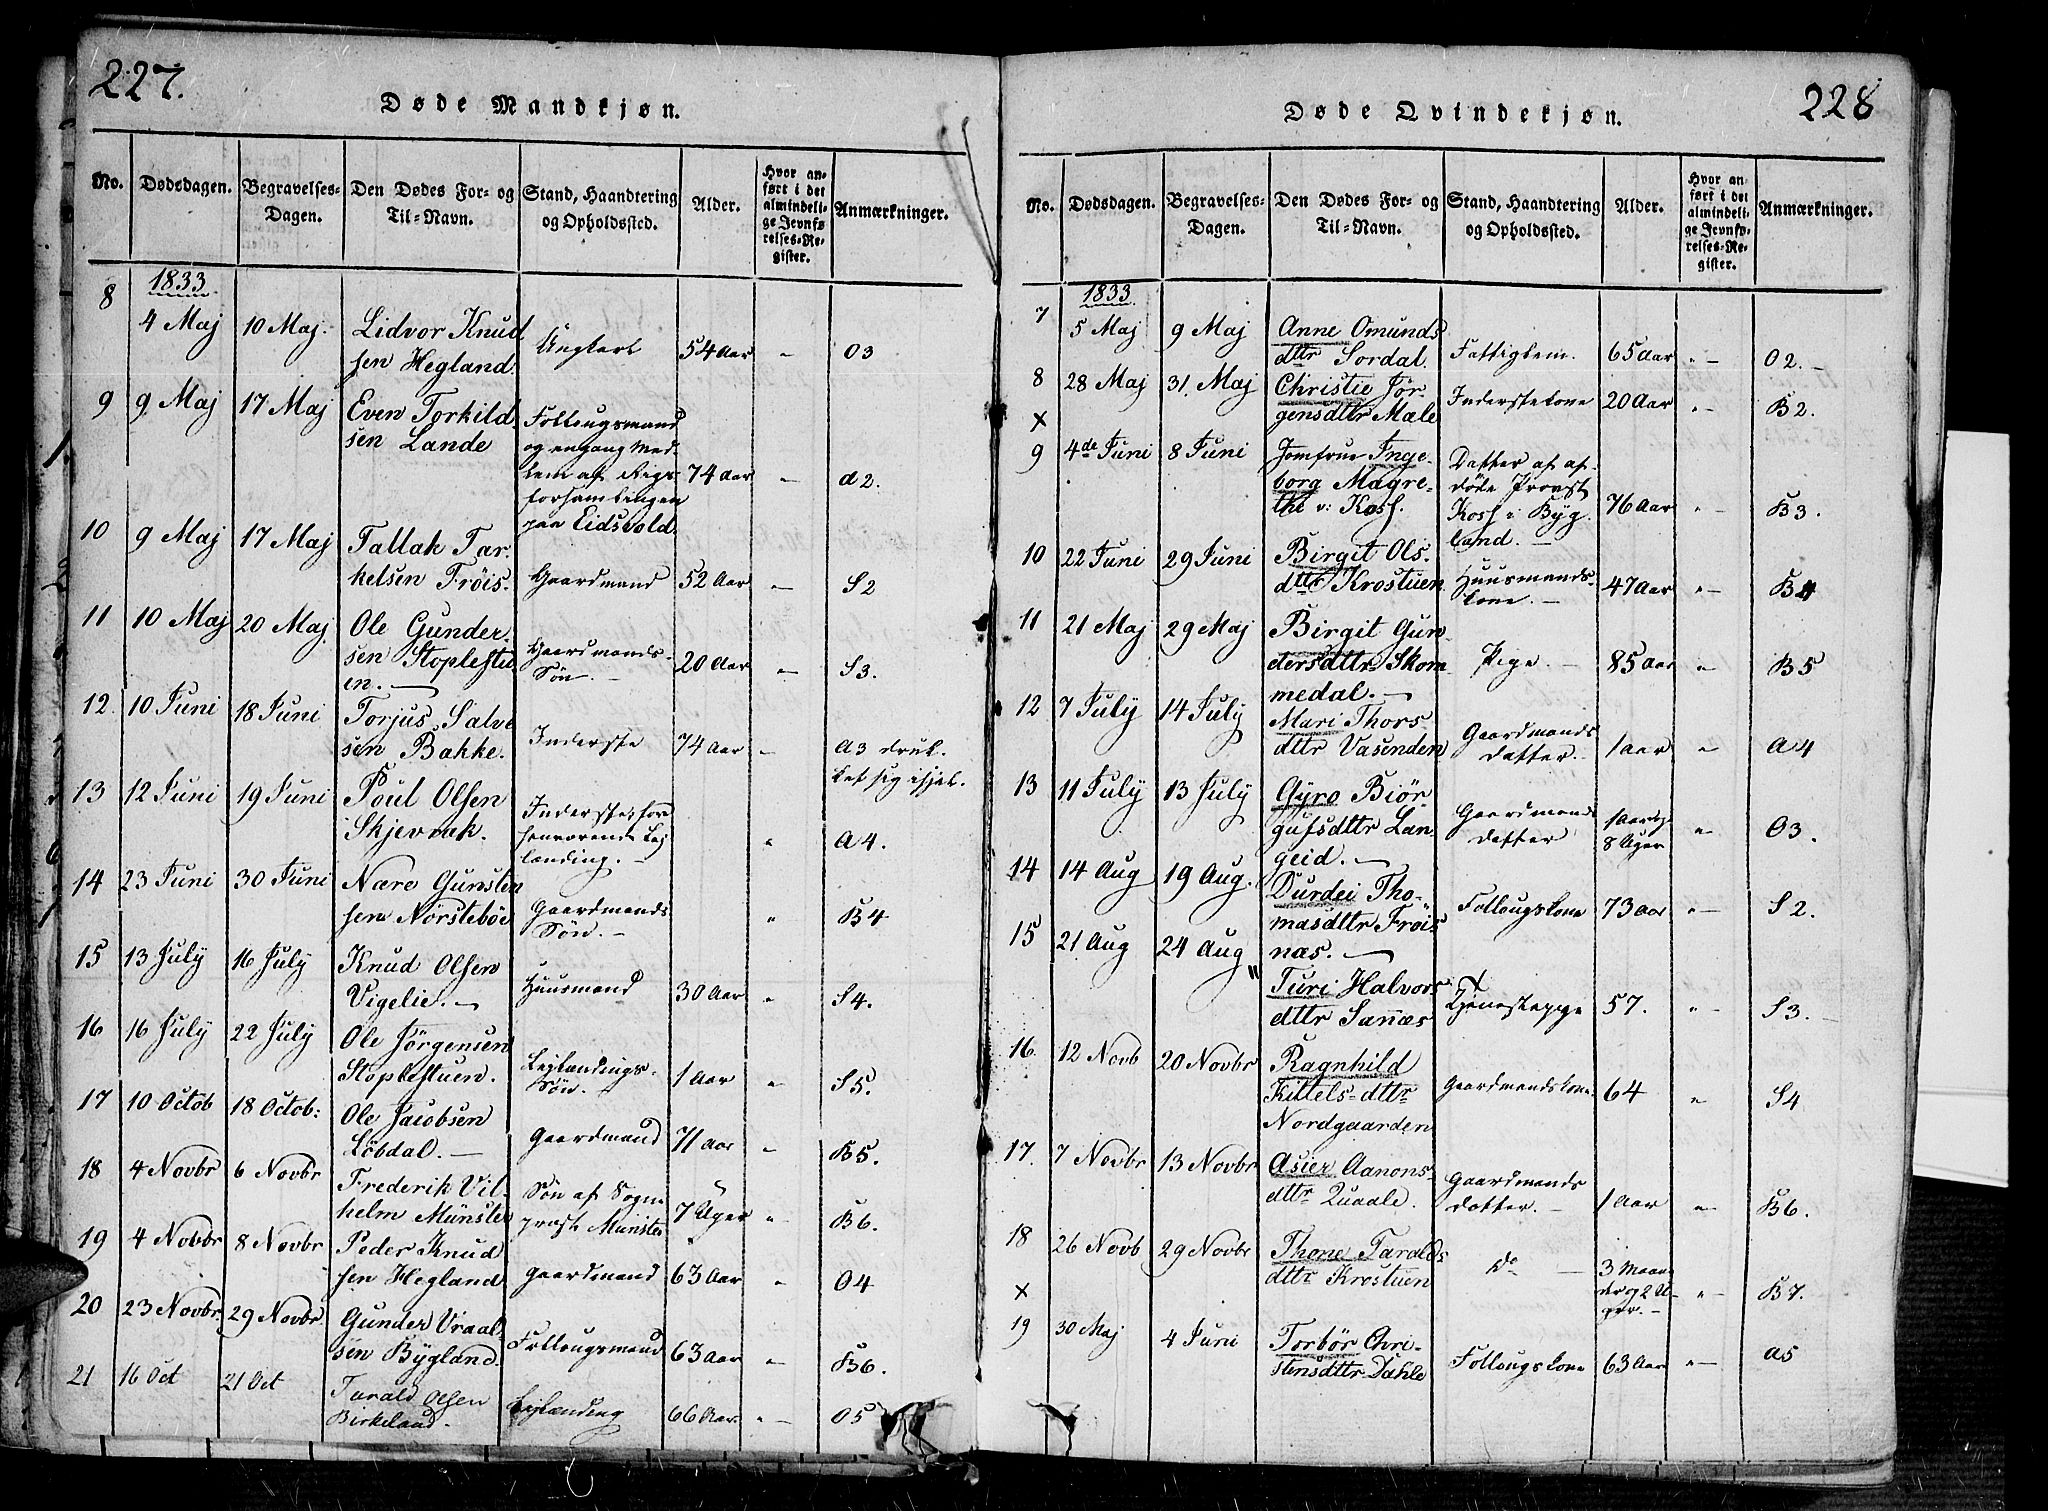 227.
Døde Mandkjøn.
No. Dødsdagen. Begravelses-Dagen. Den Dødes For- og Til-Navn. Stand, Haandtering og Opholdssted. Alder. Hvor anført i det almindelige Jevnførelses-Register. Anmærkninger.
1833
8 4 Maj 10 Maj. Lidvor Knud
sen Hegland. Ungkarl 54 Aar " O3
9 9 Maj 17 Maj Even Torkild
sen Lande Follougsmand
og engang Med
lem af Rigs
forsamlingen
paa Eidsvold. 74 Aar - a2.
10 9 Maj 17 Maj Tallak Tar-
kelsen Fröis- Gaardmand 52 Aar - S2
11 10 Maj 20 Maj. Ole Gunder-
sen Stoplestu
en. Gaardmands-
Søn. 20 Aar - S3.
12. 10 Juni 18 Juni Torjus Salve
sen Bakke. Inderste 74 Aar - A3 druk-
let sig ihjel.
13 12 Juni 19 Juni Poul Olsen
Skjevrak. Inderste, for
henværende Lej
lænding. " A4.
14 23 Juni 30 Juni Nære Gunsten
sen Nörsteböe Gaardmands
Søn. " B4
15 13 July 16 July Knud Olsen
Vigelie. Huusmand 30 Aar " S4.
16 16 July 22 July Ole Jörgensen
Stoplestuen. Lejlændings-
Søn. 1 Aar " S5.
17 10 Octob 18 Octob: Ole Jacobsen
Löbdal. Gaardmand 71 Aar " B5.
18 4 Novbr 6 Novbr Frederik Vil-
helm Münster Søn af Sogne
præst Münster 7 Uger " B6.
19 4 Novbr 8 Novbr Peder Knud
sen Hegland Gaardmand 63 Aar " O4
20 23 Novbr. 29 Novbr Gunder Vraal-
sen Bygland. Follougsmand 63 Aar " B6.
21 16 Oct 21 Oct Tarald Olsen
Birkeland. Lejlænding 66 Aar. " O5
228
Døde Qvindekjøn.
No. Dødsdagen. Begravelses-Dagen. Den Dødes For- og Til-Navn. Stand, Haandtering og Opholdssted. Alder. Hvor anført i det almindelige Jevnførelses-Register. Anmærkninger.
1833.
7 5 Maj 9 Maj Anne Omunds
dttr Sordal. Fattiglem. 65 Aar " O2.
8 28 Maj 31. Maj Christie Jör-
gensdttr Mæle Inderstekone 20 Aar " B2.
x
9 4de Juni 8 Juni Jomfrue Inge-
borg Magre-
the v: Koss. Datter af af-
døde Provst
Koss i Byg
land. 76 Aar " B3.
10 22 Juni 29 Juni Birgit Ols-
dttr Krostuen Huusmands-
kone. 47 Aar " B4
11 21 Maj 29 Maj Birgit Gun-
dersdttr Skom
medal. Pige. 85 Aar " B5
12 7 July 14 July Mari Thors
dttr Vasenden Gaardmands
datter. 1 Aar " A4
13 11 July 13 July Gyro Biör-
gufsdttr Lan-
geid. Gaardmands
datter 1 Aar og
8 Uger " O3.
14 14 Aug 19 Aug. Durdei Tho-
masdttr Fröis
næs. Follougskone 73 Aar " S2.
15 21 Aug 24 Aug " Turi Halvors
dttr Sannæs Tjenestepige 57. " S3.
16. 12 Novb 20 Novbr Ragnhild
Kittels-dttr
Nordgaarden Gaardmandskone 64 " S4
17. 7 Novbr 13 Novbr Asier Aanons-
dttr Quaale. Gaardmands
datter. 1 Aar " B6.
18 26 Novb 29 Novbr Thone Taralds
dttr Krostuen Do 3 Maane
der og 2 U-
ger. " B7.
x
19 30 Maj 4 Juni Torbör Chri-
stensdttr Dahle Follougskone 63 Aar " A5